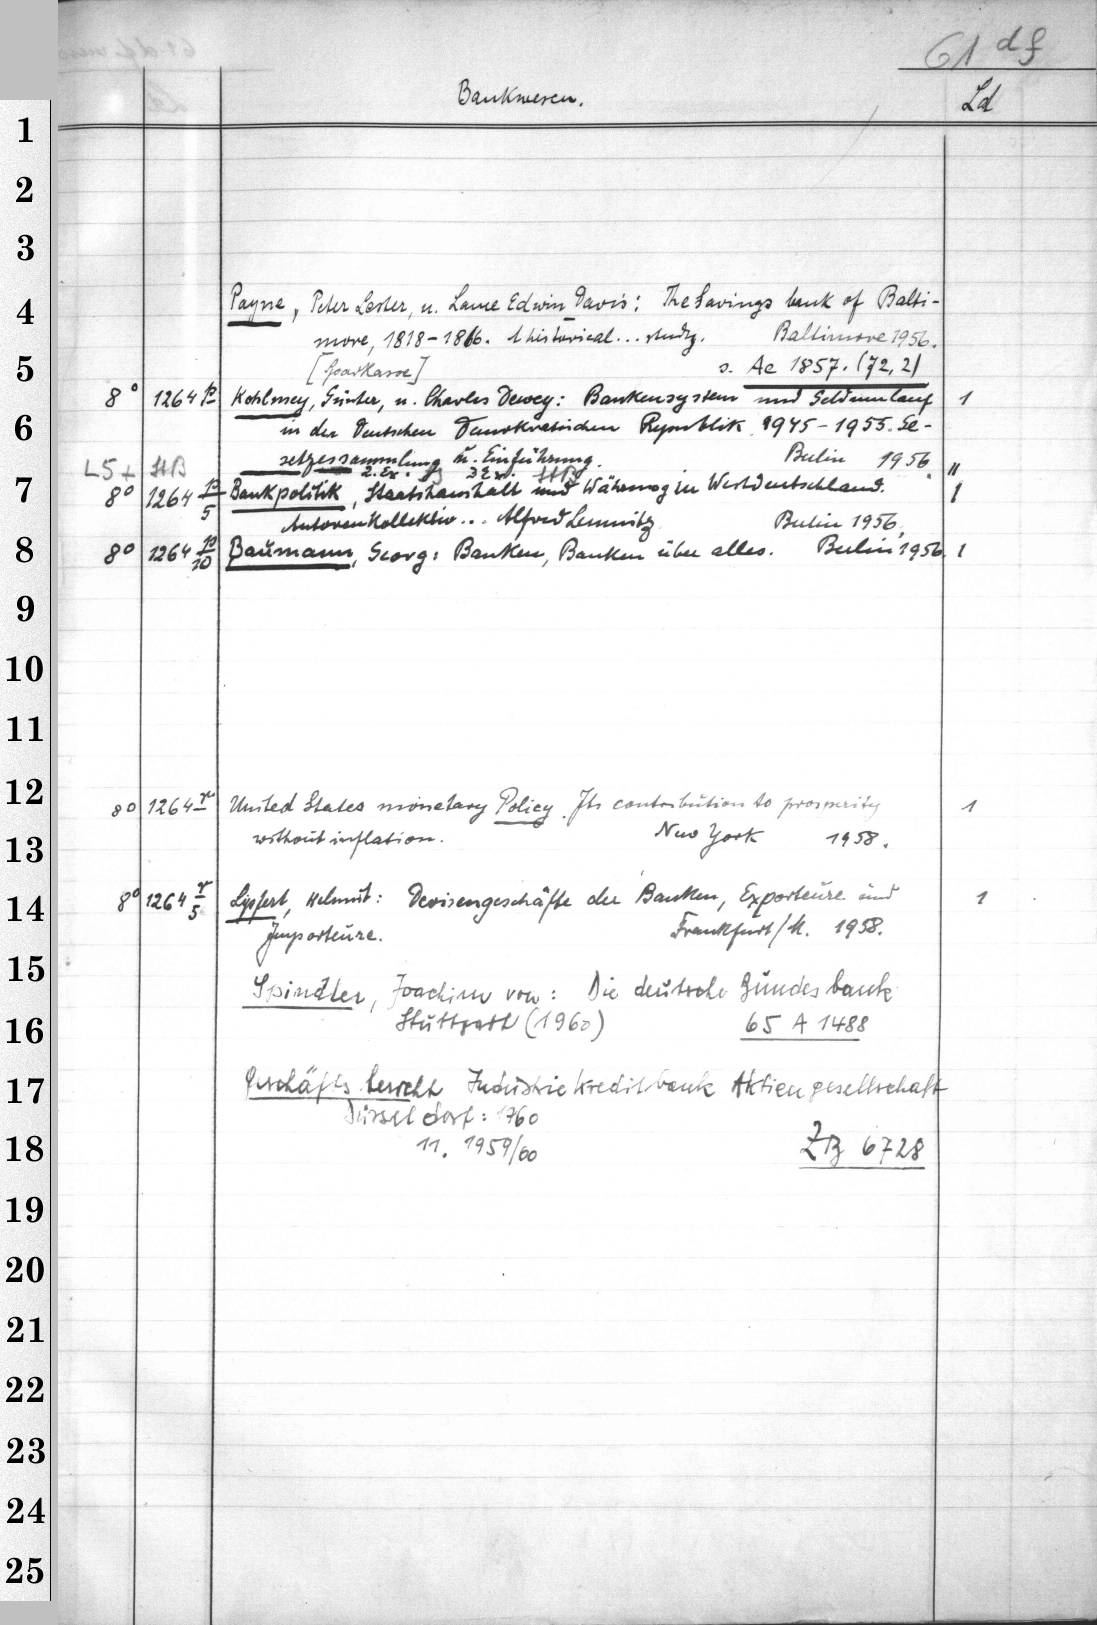 61 df
Bankwesen. Ld
1
2
3
4 Payne, Peter Lester, u. Lance Edwin Davis: The Savings bank of Balti-
more, 1818-1866. A historical... study. Baltimore 1956.
5 [Sparkasse] s. Ac 1857. (72,2)
8° 1264 p Kohlmey, Günter, u. Charles Dewey: Bankensystem und Geldumlauf 1
6 in der Deutschen Demokratischen Republik 1945-1955. Ge-
setzessammlung u. Einführung. Berlin 1956. "
LS+ HB 2. Ex. 3 Ex. HB
7 8° 1264 p/5 Bankpolitik, Staatshaushalt und Währung in Westdeutschland. 1
Autorenkollektiv... Alfred Lemnitz Berlin 1956.
8 8° 1264 p/10 Baumann, Georg: Banken, Banken über alles. Berlin 1956. 1
9
10
11
12 8° 1264 r United States monetary Policy. Its contribution to prosperity 1
13 without inflation. New York 1958.
14 8° 1264 r/5 Lipfert, Helmut: Devisengeschäfte der Banken, Exporteure und 1
Importeure. Frankfurt/M. 1958.
15 Spindler, Joachim von: Die deutsche Bundesbank
16 Stuttgart (1960) 65 A 1488
17 Geschäftsbericht Industriekreditbank Aktiengesellschaft
Düsseldorf: 1960
18 11. 1959/60 ZB 6728
19
20
21
22
23
24
25